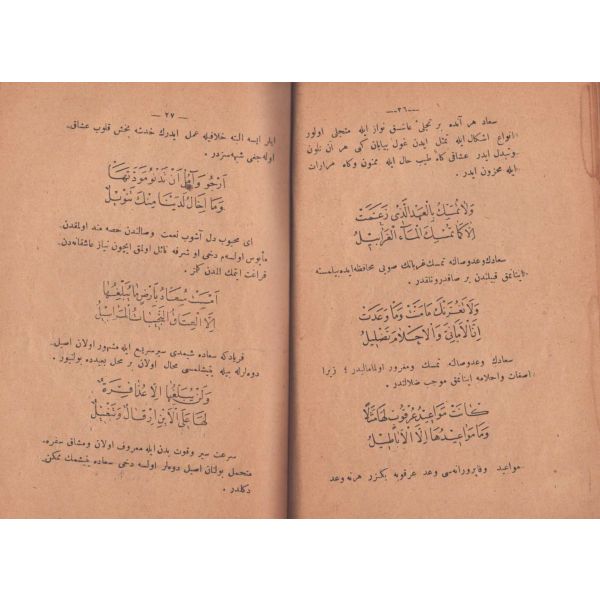 —٣٦—
سعاد هر آنده بر تجلیٔ عاشق نواز ایله متجلی اولور
انواع اشكال ایله تمثل ایدن غول بیابان كبی هر آن تلون
وتبدل ایدر عشاقی كاه طیب حال ایله ممنون وكاه مرارات
ایله محزون ایدر .
وَلَا تَمَسَّكُ بِالْعَهْدِ الَّذِي زَعَمَتْ
اِلَّا كَمَا تُمْسِكُ الْمَاءَ الْغَرَابِيلُ
سعادك وعد وصالنه تمسك غربالك صویی محافظه ایده بیلمسنه
اینانمق قبیلندن بر صافدرونلقدر .
وَلَا يَغُرَّنْكَ مَا مَنَّتْ وَمَا وَعَدَتْ
اِنَّ الْاَمَانِيَّ وَالْاَحْلَامَ تَضْلِيلُ
سعادك وعد وصالنه تمسك ومغرور اولماملیدر ؛ زیرا
اضغاث واحلامه اینانمق موجب ضلالتدر .
كَانَتْ مَوَاعِيدُ عُرْقُوبٍ لَهَا مَثَلًا
وَمَا مَوَاعِيدُهَا اِلَّا الْاَبَاطِيلُ
مواعید وفاپرورانه‌سی وعد عرقوبه بكزر هرنه وعد
— ٣٧ —
ایلر ایسه البته خلافیله عمل ایدرك خدشه بخش قلوب عشاق
اوله جغی شبهه‌سزدر .
اَرْجُو وَآمُلُ اَنْ تَدْنُو مَوَدَّتُهَا
وَمَا اِخَالُ لَدَيْنَا مِنْكِ تَنْوِيلُ
ای محبوب دل آشوب نعمت وصالندن حصه مند اولمقدن
مأیوس اولسه‌م دخی او شرفه نائل اولمق ایچون نیاز عاشقانه‌دن
فراغت ایتمك الدن كلمز .
اَمْسَتْ سُعَادُ بِاَرْضٍ مَا يُبَلِّغُهَا
اِلَّا الْعِتَاقُ النَّجِيبَاتُ الْمَرَاسِيلُ
فریاد كه سعاده شیمدی سیر سریع ایله مشهور اولان اصیل
دوه‌لرله بیله یتیشلمسی محال اولان بر محل بعیدده بولنیور .
وَلَنْ يُبَلِّغَهَا اِلَّا عُذَافِرَةٌ
لَهَا عَلَى الْاَيْنِ اِرْقَالٌ وَتَبْغِيلُ
سرعت سیر وقوت بدن ایله معروف اولان ومشاق سفره
متحمل بولنان اصیل دوه‌لر اولسه دخی سعاده یتیشمك ممكن
دكلدر .